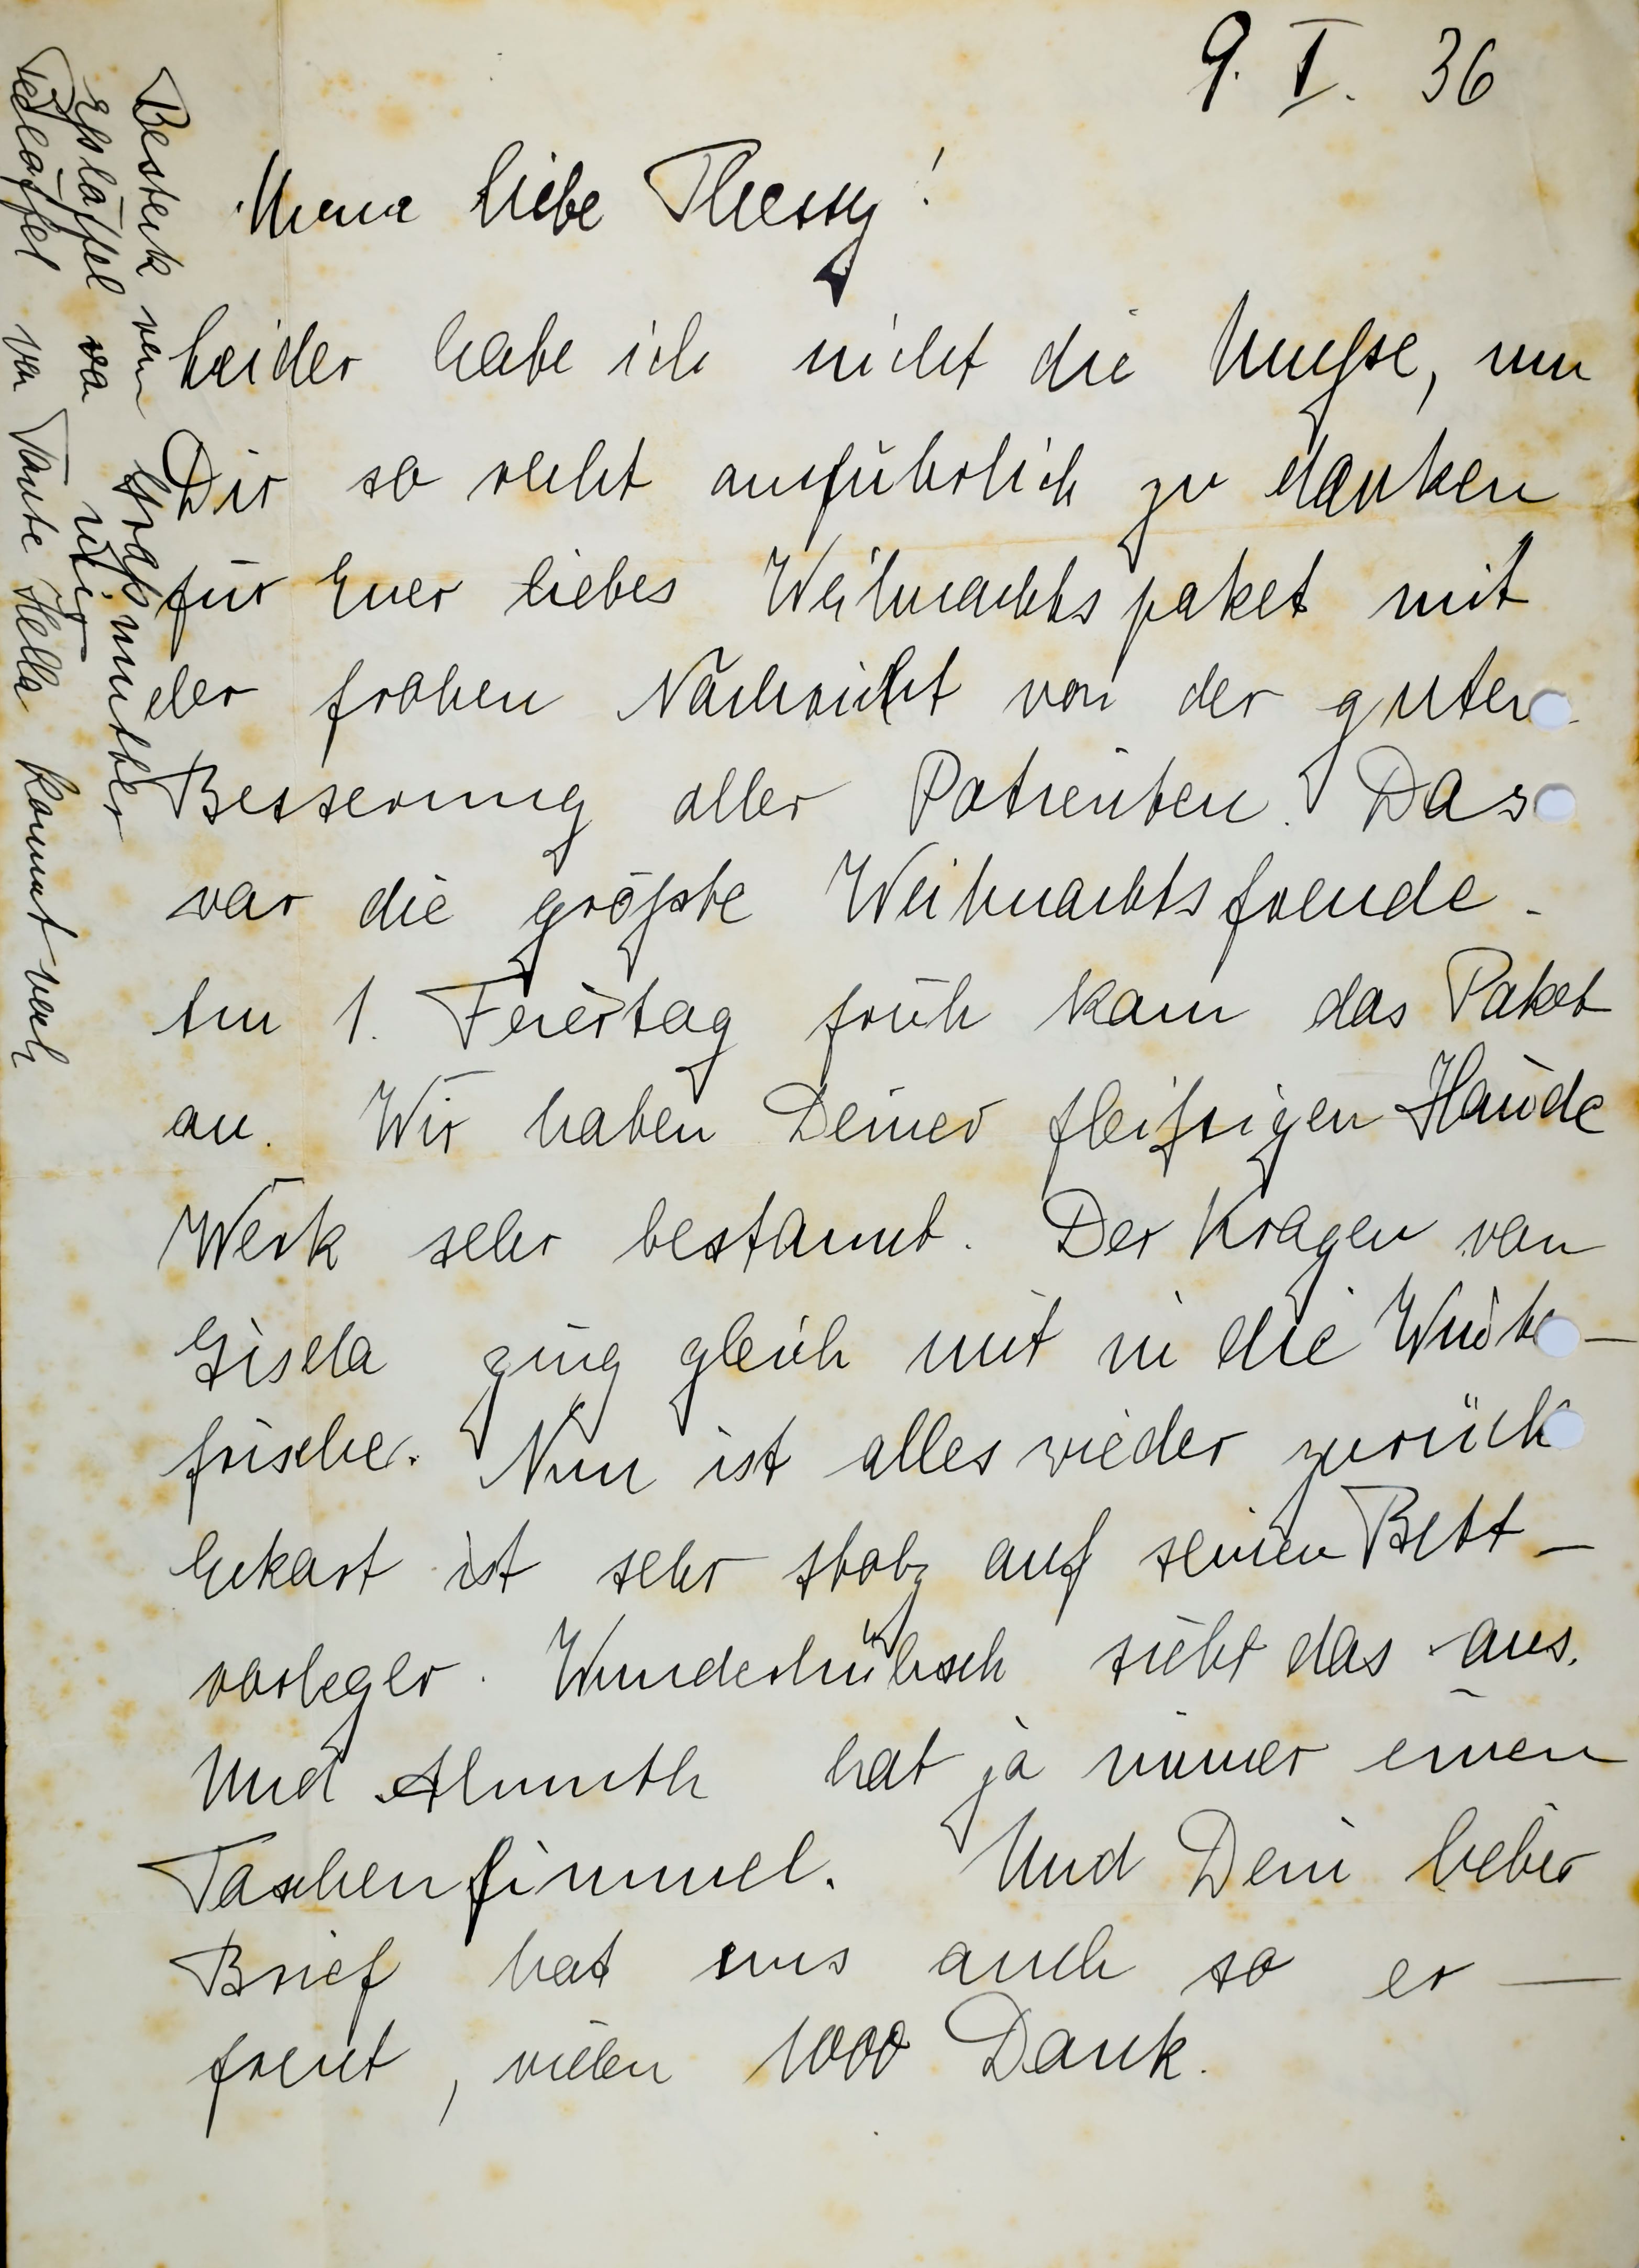 9. I. 36
Meine liebe Thessy!
Leider habe ich nicht die Mußse, um
Dir so recht ausführlich zu danken
für Euer liebes Weihnachtspaket mit
der frohen Nachricht von der guten
Besserung aller Patienten. Das
war die größte Weihnachtsfreude.
Am 1. Feiertag früh kam das Paket
an. Wir haben Deiner fleißigen Hände
Werk sehr bestaunt. Der Kragen von
Gisela ging gleich mit in die Winter-
frische. Nun ist alles wieder zurück
Eckart ist sehr stolz auf seinen Bett-
vorleger. Wunderhübsch sieht das aus.
Und Almuth hat ja immer einen
Taschenfimmel. Und Dein lieber
Brief hat uns auch so er-
freut, vielen 1000 Dank.
Besteck von Großmutter
Esslöffel von
Teelöffel von Tante Hella kommt nach